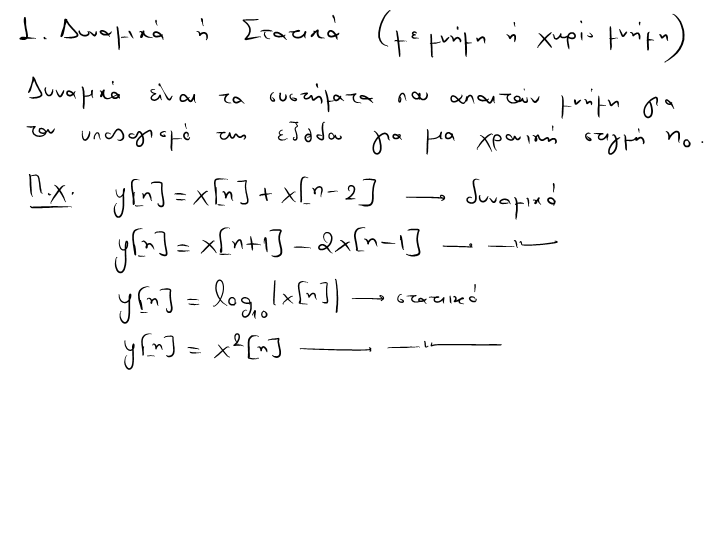 1. Δυναμικά ή Στατικά (με μνήμη ή χωρίς μνήμη)
Δυναμικά είναι τα συστήματα που απαιτούν μνήμη για
τον υπολογισμό της εξόδου για μια χρονική στιγμή n₀.
Π.χ. y[n] = x[n] + x[n-2] → δυναμικό
y[n] = x[n+1] - 2x[n-1] — —〃—
y[n] = log₁₀|x[n]| → στατικό
y[n] = x²[n] — —〃—